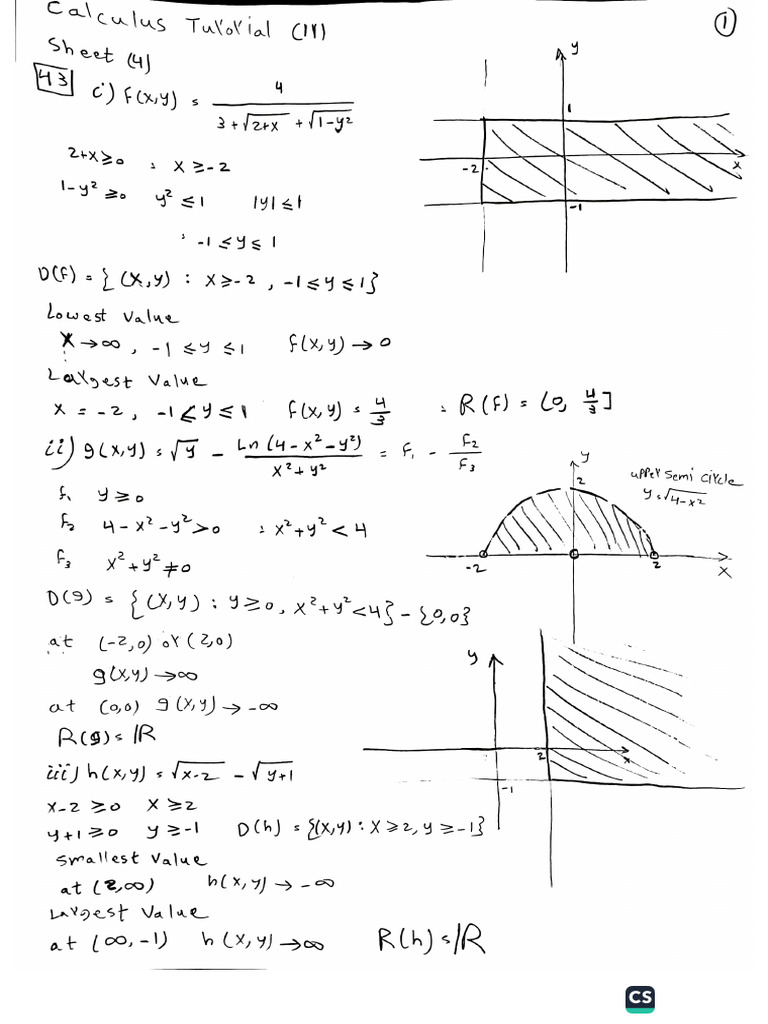 Calculus Tutorial (11)
①
Sheet (4)
43 i) f(x,y) = 4 / (3 + √(2+x) + √(1-y²))
2+x ≥ 0 ∴ x ≥ -2
1-y² ≥ 0 y² ≤ 1 |y| ≤ 1
∴ -1 ≤ y ≤ 1
y
1
-2
x
-1
D(f) = { (x,y) : x ≥ -2 , -1 ≤ y ≤ 1}
Lowest Value
x → ∞ , -1 ≤ y ≤ 1 f(x,y) → 0
Largest Value
x = -2 , -1 < y ≤ 1 f(x,y) = 4/3 ∴ R(f) = (0, 4/3]
ii) g(x,y) = √y - Ln(4-x²-y²) / (x²+y²) = f₁ - F₂/F₃
f₁ y ≥ 0
F₂ 4-x²-y² > 0 ∴ x²+y² < 4
F₃ x²+y² ≠ 0
y
2
upper semi circle
y = √(4-x²)
-2
2
x
D(g) = { (x,y) : y ≥ 0, x²+y² < 4} - {0,0}
at (-2,0) or (2,0)
g(x,y) → ∞
at (0,0) g(x,y) → -∞
R(g) = ℝ
iii) h(x,y) = √(x-2) - √(y+1)
x-2 ≥ 0 x ≥ 2
y+1 ≥ 0 y ≥ -1 D(h) = {(x,y) : x ≥ 2, y ≥ -1}
y
2
x
-1
Smallest Value
at (2,∞) h(x,y) → -∞
Largest Value
at (∞,-1) h(x,y) → ∞ R(h) = ℝ
CS